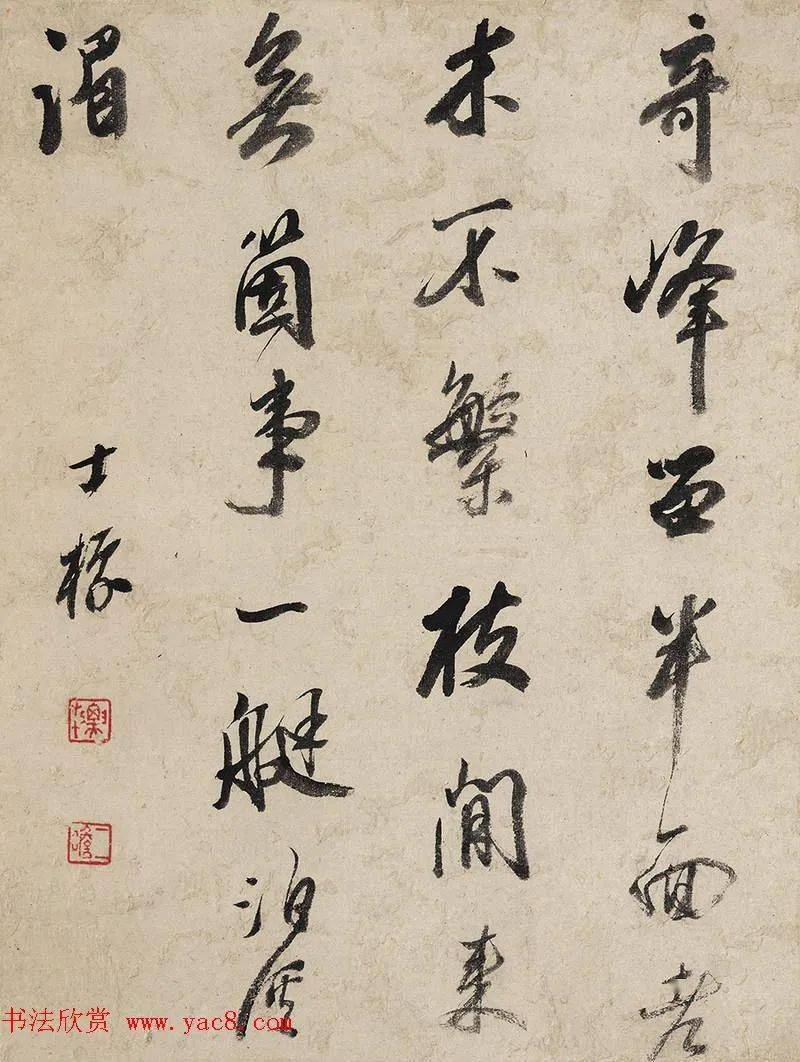 奇峰留半面老
木不繁枝閒来
無箇事一艇泊
湄
士標
士標
二瞻
书法欣赏 www.yac8.com